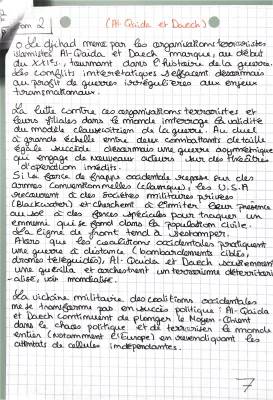 (Al-Qaida et Daech)
Le djihad mené par les organisations terroristes
islamistes Al-Qaida et Daech marque, au début
du XXIe s., tournant dans l'histoire de la guerre.
Les conflits interétatiques s'effacent désormais
au profit de guerres irrégulières aux enjeux
transnationaux.
La lutte contre ces organisations terroristes et
leurs filiales dans le monde interroge la validité
du modèle clausewitzien de la guerre. Au duel
à grande échelle entre deux combattants de taille
égale succède désormais une guerre asymétrique
qui engage de nouveaux acteurs sur des théâtres
d'opération inédits.
Si la force de frappe occidentale repose sur des
armes conventionnelles (classique), les U.S.A
recourent à des sociétés militaires privées
(Blackwater) et cherchent à limiter leur présence
au sol à des forces spéciales pour traquer un
ennemi qui se fond dans la population civile.
La ligne de front tend à s'estomper.
Alors que les coalitions occidentales pratiquent
une guerre à distance (bombardements ciblés,
drones téléguidés), Al-Qaida et Daech
une guérilla et orchestrent un terrorisme déterritori
-alisé, voir mondialisé.
La victoire militaire des coalitions occidentales
ne se transforme pas en succès politique : Al-Qaida
et Daech continuent de plonger le Moyen-Orient
dans le chaos politique et de terroriser le monde
entier (notamment l'Europe) en revendiquant les
attentats de cellules indépendantes.
7